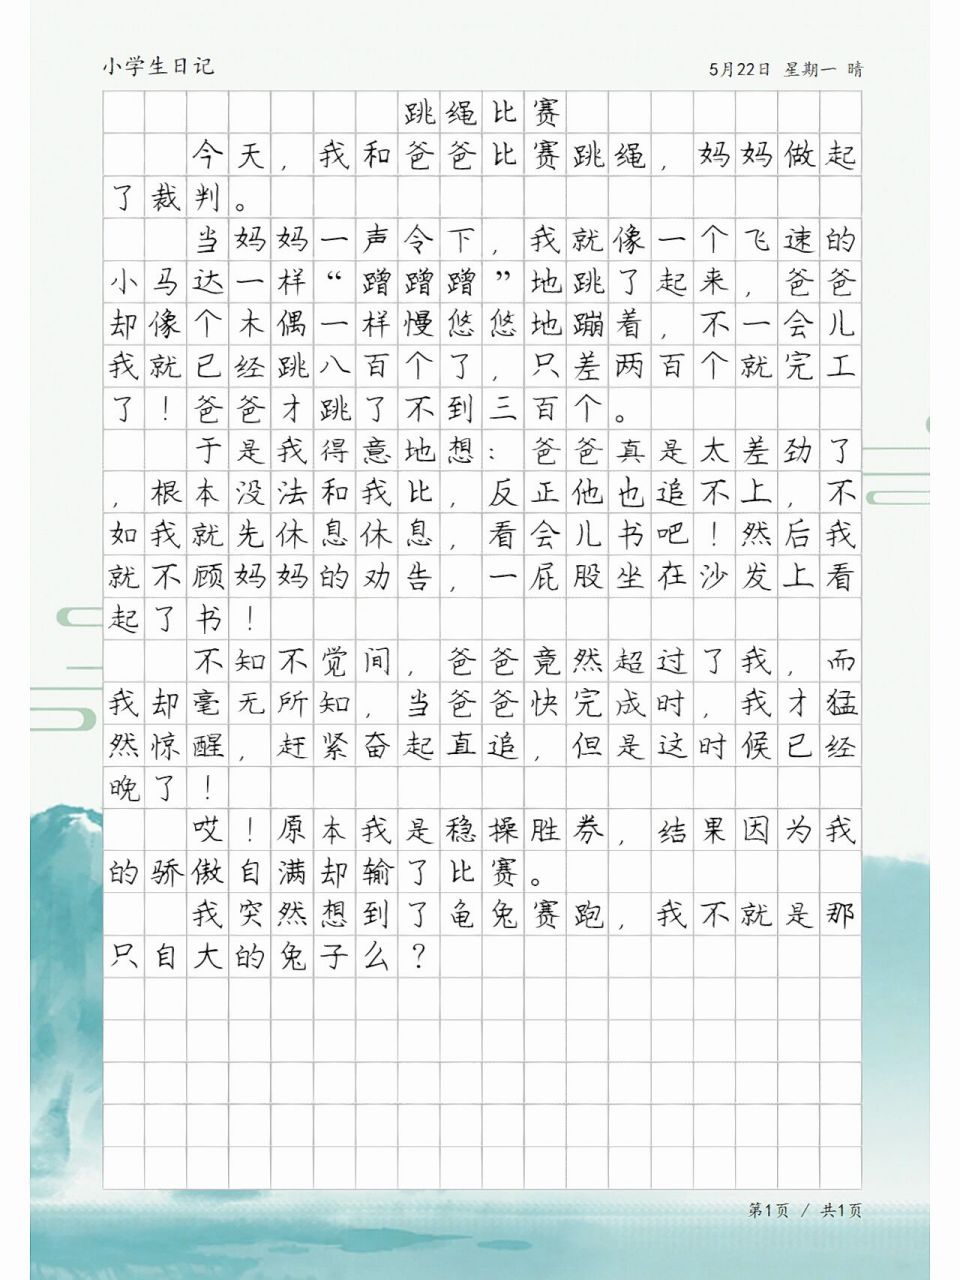 小学生日记
5月22日 星期一 晴
跳绳比赛
今天，我和爸爸比赛跳绳，妈妈做起
了裁判。
当妈妈一声令下，我就像一个飞速的
小马达一样“蹭蹭蹭”地跳了起来，爸爸
却像个木偶一样慢悠悠地蹦着，不一会儿
我就已经跳八百个了，只差两百个就完工
了！爸爸才跳了不到三百个。
于是我得意地想：爸爸真是太差劲了
，根本没法和我比，反正他也追不上，不
如我就先休息休息，看会儿书吧！然后我
就不顾妈妈的劝告，一屁股坐在沙发上看
起了书！
不知不觉间，爸爸竟然超过了我，而
我却毫无所知，当爸爸快完成时，我才猛
然惊醒，赶紧奋起直追，但是这时候已经
晚了！
哎！原本我是稳操胜券，结果因为我
的骄傲自满却输了比赛。
我突然想到了龟兔赛跑，我不就是那
只自大的兔子么？
第1页 / 共1页